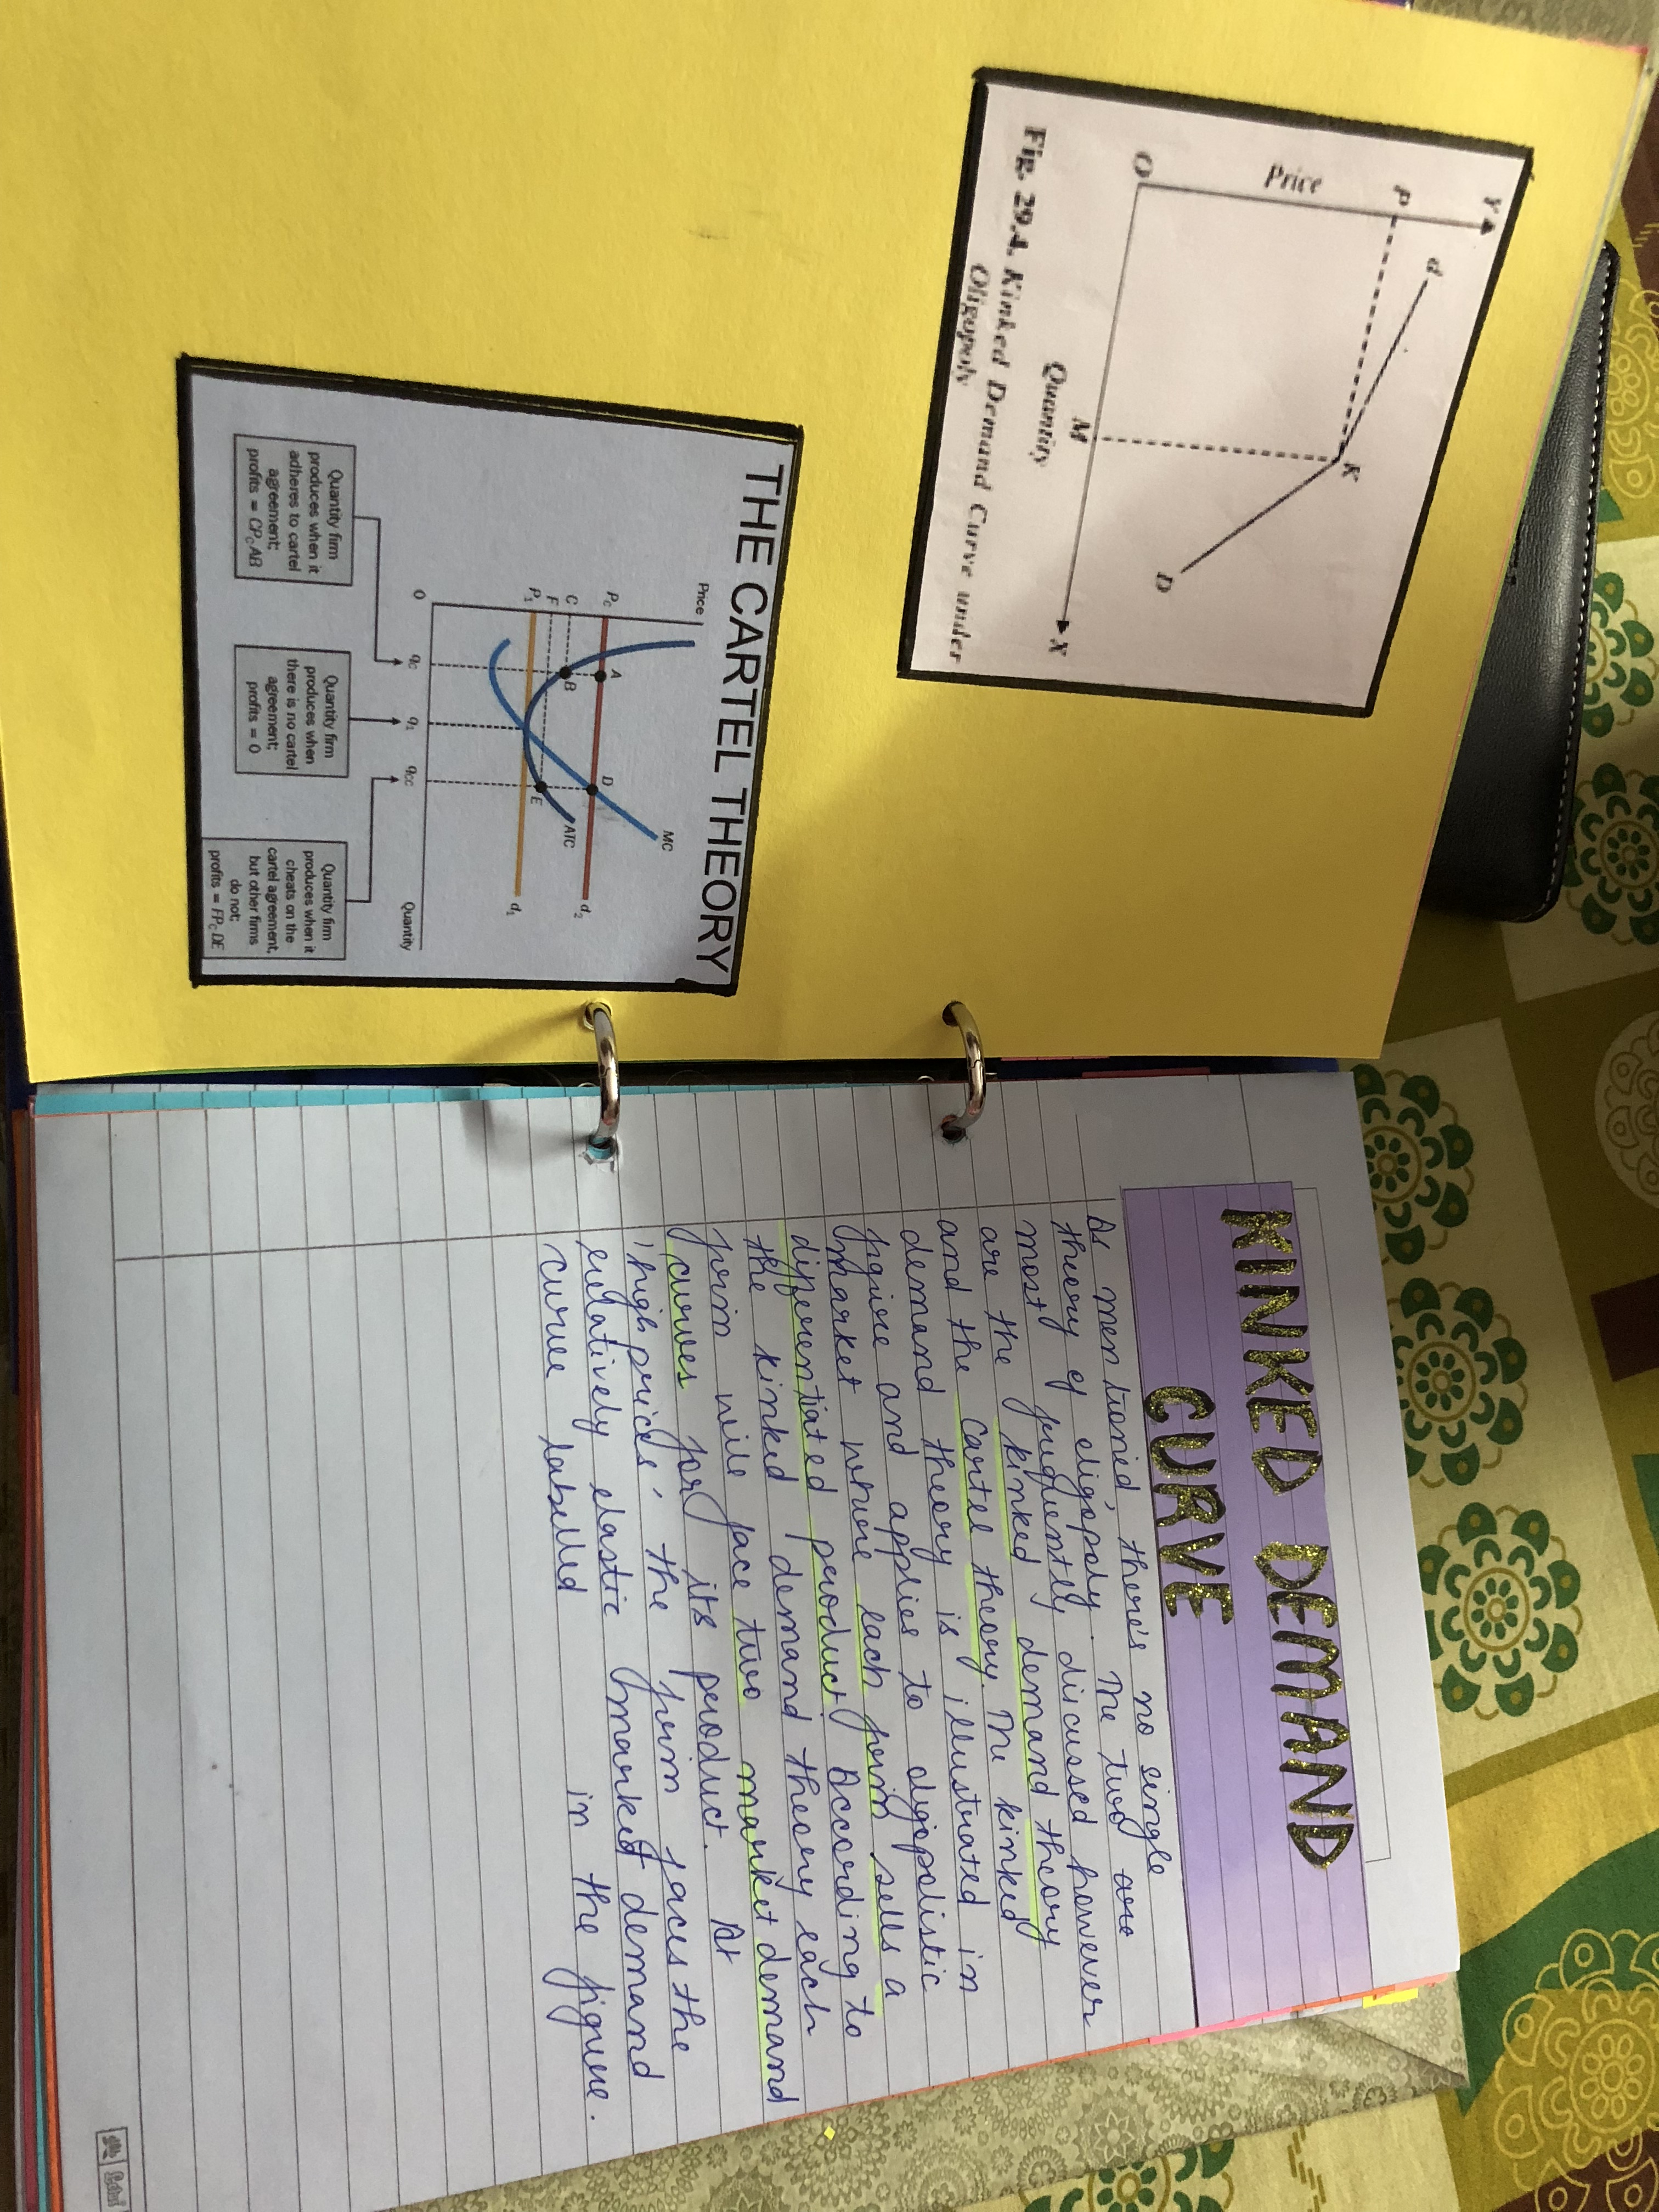 Y
d
P
K
Price
D
O
M
X
Quantity
Fig. 29.4. Kinked Demand Curve under
Oligopoly
THE CARTEL THEORY
Price
MC
P_C
A
D
d_2
C
B
ATC
F
E
P_1
d_1
O
q_C
q_1
q_CC
Quantity
Quantity firm
produces when it
adheres to cartel
agreement;
profits = CP_CAB
Quantity firm
produces when
there is no cartel
agreement;
profits = 0
Quantity firm
produces when it
cheats on the
cartel agreement,
but other firms
do not;
profits = FP_CDE
KINKED DEMAND
CURVE
As mentioned, there's no single
theory of oligopoly. The two are
most frequently discussed however
are the kinked demand theory
and the Cartel theory. The kinked
demand theory is illustrated in
figure and applies to oligopolistic
market where each firm sells a
differentiated product. According to
the kinked demand theory each
firm will face two market demand
curves for its product. At
high prices, the firm faces the
relatively elastic market demand
curve labelled in the figure.